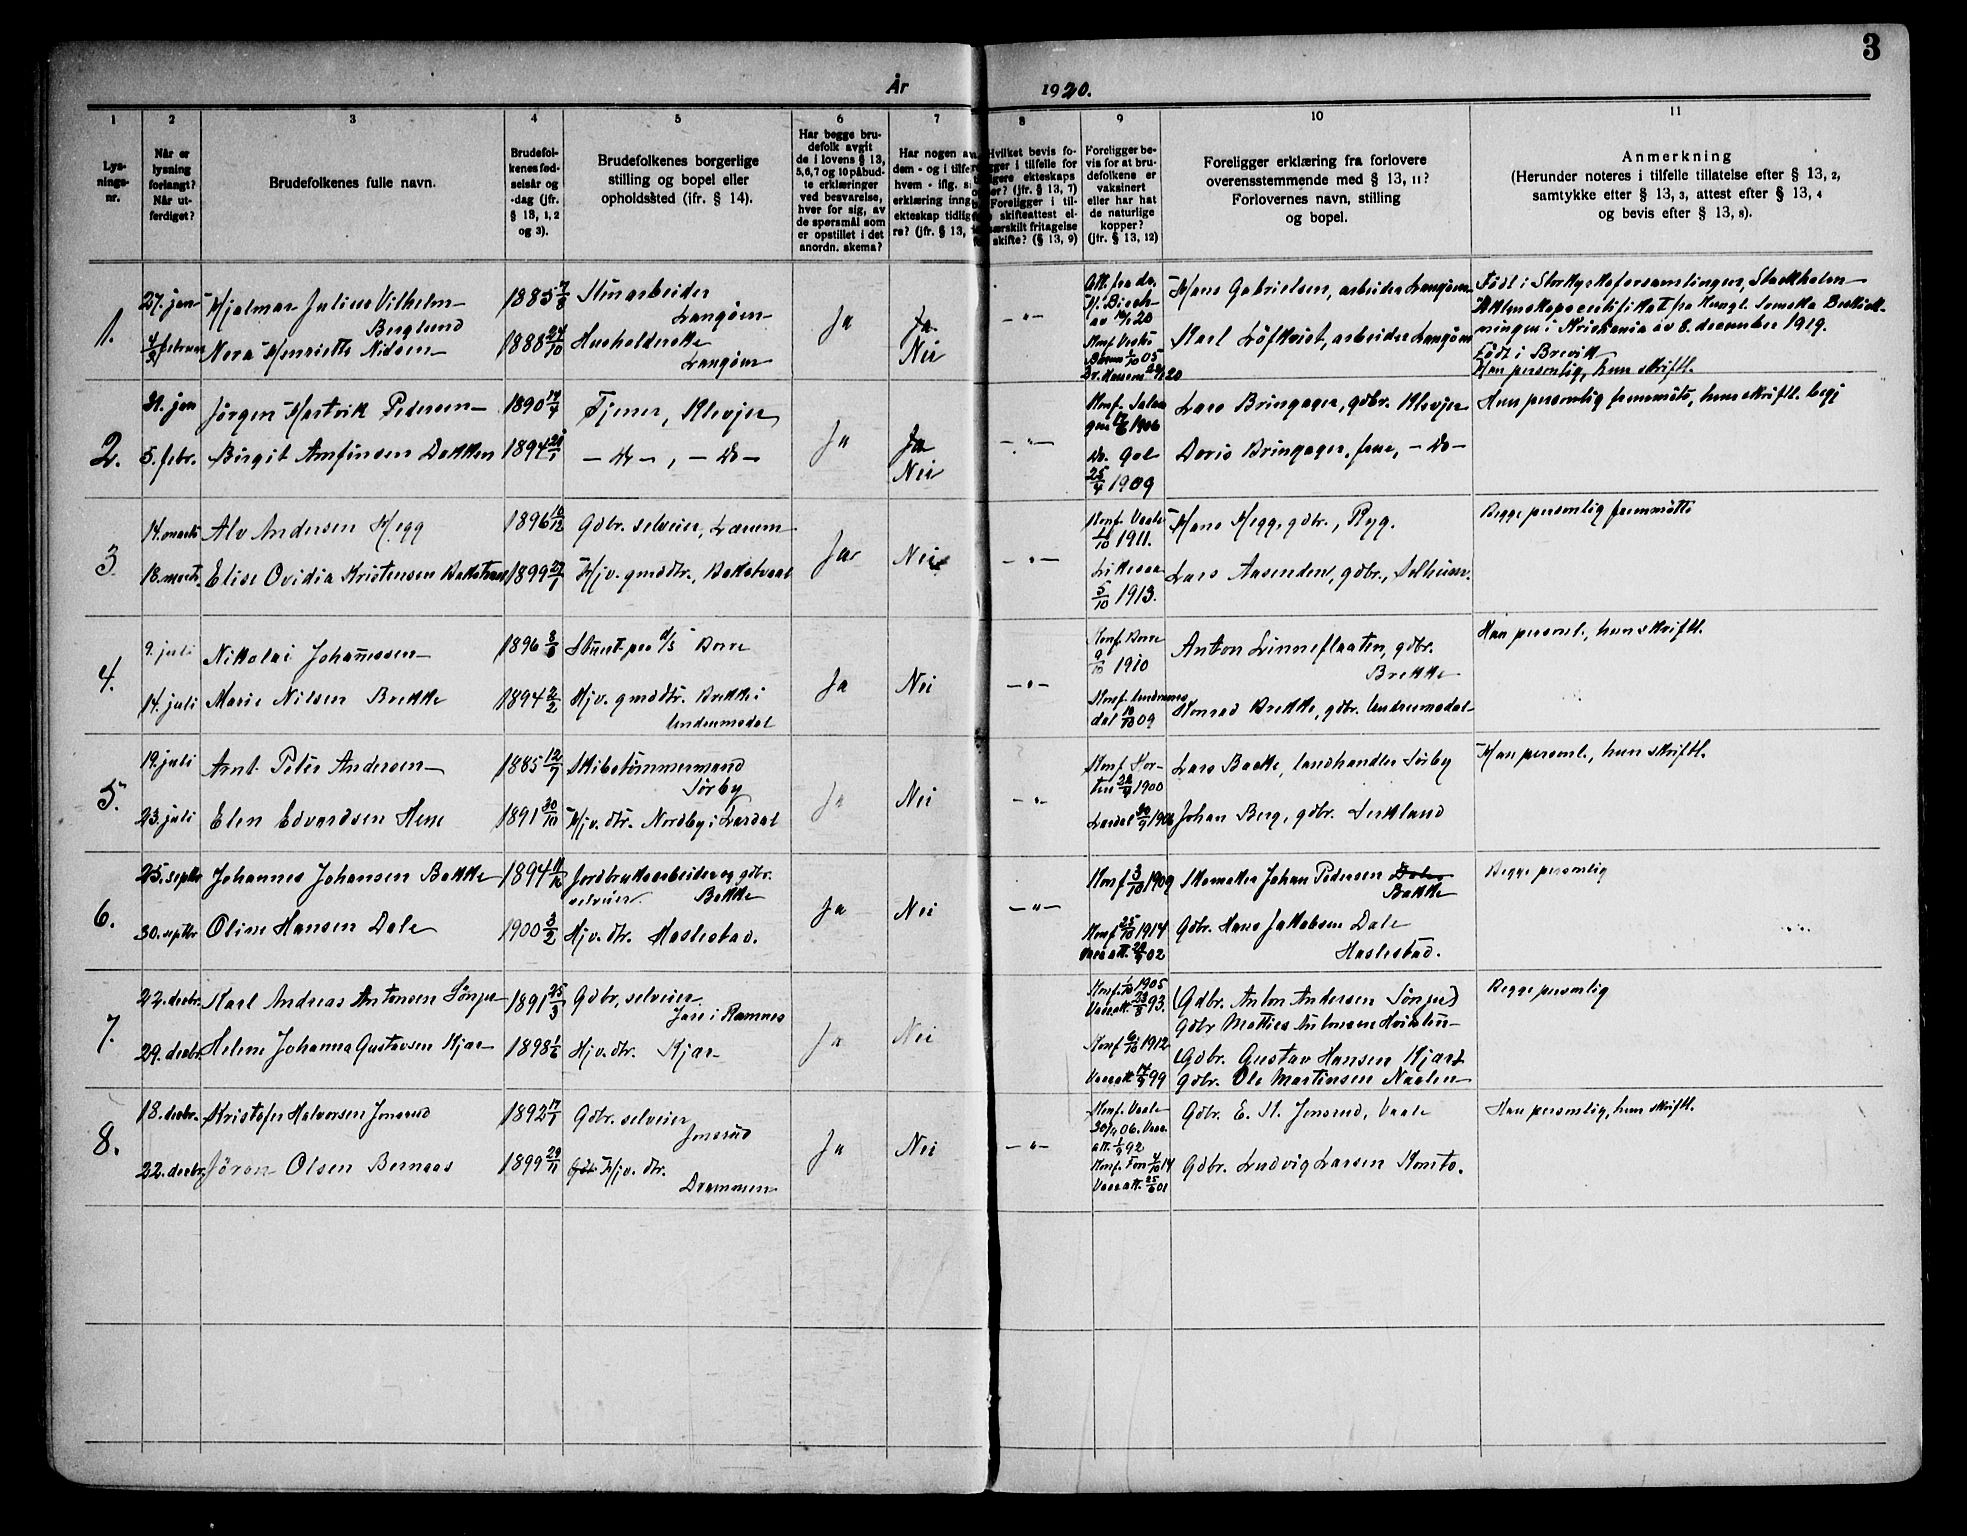 3
År 1920.
1
Lys-
nings-
nr.
2
Når er
lysning
forlangt?
Når ut-
ferdiget?
3
Brudefolkenes fulle navn.
4
Brudefol-
kenes fød-
selsår og
-dag (jfr.
§ 13, 1, 2
og 3).
5
Brudefolkenes borgerlige
stilling og bopel eller
opholdssted (jfr. § 14).
6
Har begge bru-
defolk avgit
de i lovens § 13,
5, 6, 7 og 10 påbud-
te erklæringer
ved besvarelse,
hver for sig, av
de spørsmål som
er opstillet i det
anordn. skema?
7
Har nogen av
dem - og i tilfe
hvem - iflg. s
erklæring inng
ekteskap tidlig
re? (jfr. § 13,
8
Hvilket bevis fo-
ligger i tilfelle for
ligere ekteskaps
er? (jfr. § 13, 7)
Foreligger i til-
skifteattest el-
særskilt fritagelse
skifte? (§ 13, 9)
9
Foreligger be-
vis for at bru-
defolkene er
vaksinert
eller har hat
de naturlige
kopper?
(jfr. § 13, 12)
10
Foreligger erklæring fra forlovere
overensstemmende med § 13, 11?
Forlovernes navn, stilling
og bopel.
11
Anmerkning
(Herunder noteres i tilfelle tillatelse efter § 13, 2,
samtykke efter § 13, 3, attest efter § 13, 4
og bevis efter § 13, 8).
1.
27. jan
4/2 februar
Hjalmar Julius Vilhelm
Berglund
Nora Henriette Nilsen
1885 7/8
1888 24/10
Stenarbeider
Langøen
Husholderske
Langøen
Ja
Ja
Nei
- " -
Hans Gabrielsen, arbeider Langøen
Karl Löfkvist, arbeider Langøen
Født i Storkyrkoforsamlingen, Stockholm
Kristiania av 8. december 1919.
Født i Brevik
Han personlig, hun skriftl.
2.
31. jan
5. febr.
Jørgen Hartvik Pedersen
Birgit Arnfinsen Dokken
1890 14/4
1894 21/1
Tjener, Klevjer
- Do -, - Do -
Ja
Ja
Nei
- " -
Do. Gol
25/4 1909
Lars Bringager, gdbr. Klevjer
Doris Bringager, frue, - Do -
Han personlig fremmøtt, hun skriftl. begj
3
14. marts
18. marts.
Alv Andersen Hegg
Elise Ovidia Kristensen Bakstvaal
1896 10/12
1899 27/7
Gdbr. selveier, Lærum
Hjv. gmddtr., Bakstvaal
Ja
Nei
- " -
Konf. Vaale
1/10 1911.
5/10 1913.
Hans Hegg, gdbr., Ryg.
Lars Aasenden, gdbr., Solheim.
Begge personlig fremmøtte
4.
9. juli
14. juli
Nikolai Johannessen
Marie Nilsen Brekke
1896 8/8
1894 2/2
Stuert paa d/s Borre
Hjv. gmddtr. Brekke i
Undrumsdal
Ja
Nei
- " -
Konf. Borre
9/10 1910
Konf. Undrums
dal 10/10 09
Anton Linneflaaten, gdbr.
Brekke
Konrad Brekke, gdbr. Undrumsdal
Han personl., hun skriftl.
5.
19. juli
23. juli
Arnt Peter Andersen
Elen Edvardsen Hem
1885 12/7
1891 30/10
Skibstømmermand
Sørby
Hjv. dtr. Nordby i Lardal
Ja
Nei
- " -
Konf. Hor-
ten 1900
Lardal 30/9 1906
Lars Bakke, landhandler Sørby
Johan Berg, gdbr.
Han personl., hun skriftl.
6.
25. septbr
30. septbr
Johannes Johansen Bakke
Oline Hansen Dale
1894 11/12
1900 3/2
Jordbruksarbeider og gdbr.
selveier. Bakke
Hjv. dtr. Haslestad.
Ja
Nei
- " -
Konf 3/10 1909
Konf 25/10 1914
Vacc att. 02
Skomaker Johan Pedersen Dale
Bakke
Gdbr. Hans Jakobsen Dale
Haslestad.
Begge personlig
7.
22. decbr.
29. decbr.
Karl Andreas Antonsen Sønju
Helene Johanna Gustavsen Kjær
1891 25/3
1898 1/6
Gdbr. selveier
Jare i Ramnes
Hjv. dtr. Kjær
Ja
Nei
Konf. 1/10 1905
Vacc att. 93.
Konf 6/10 1912
Vacc att 99
(Gdbr. Anton Andersen Sønju)
Gdbr Mattias
(Gdbr. Gustav Hansen Kjær)
Gdbr. Ole Martinsen
Begge personlig
8.
18. decbr.
22. decbr.
Kristofer Halvorsen Jmsrud
Jøran Olsen Bernaas
1892 17/7
1899 29/11
Gdbr. selveier
Jmsrud
Hjv. dtr.
Drammen
Ja
Nei
- " -
Konf. Vaale
30/9 06. Vacc.
att. 1/9 92
Konf. 4/10 14
Vacc att. 25/6 01
Gdbr. E. H. Jmsrud, Vaale
Gdbr. Ludvig Larsen
Han personlig, hun skriftl.